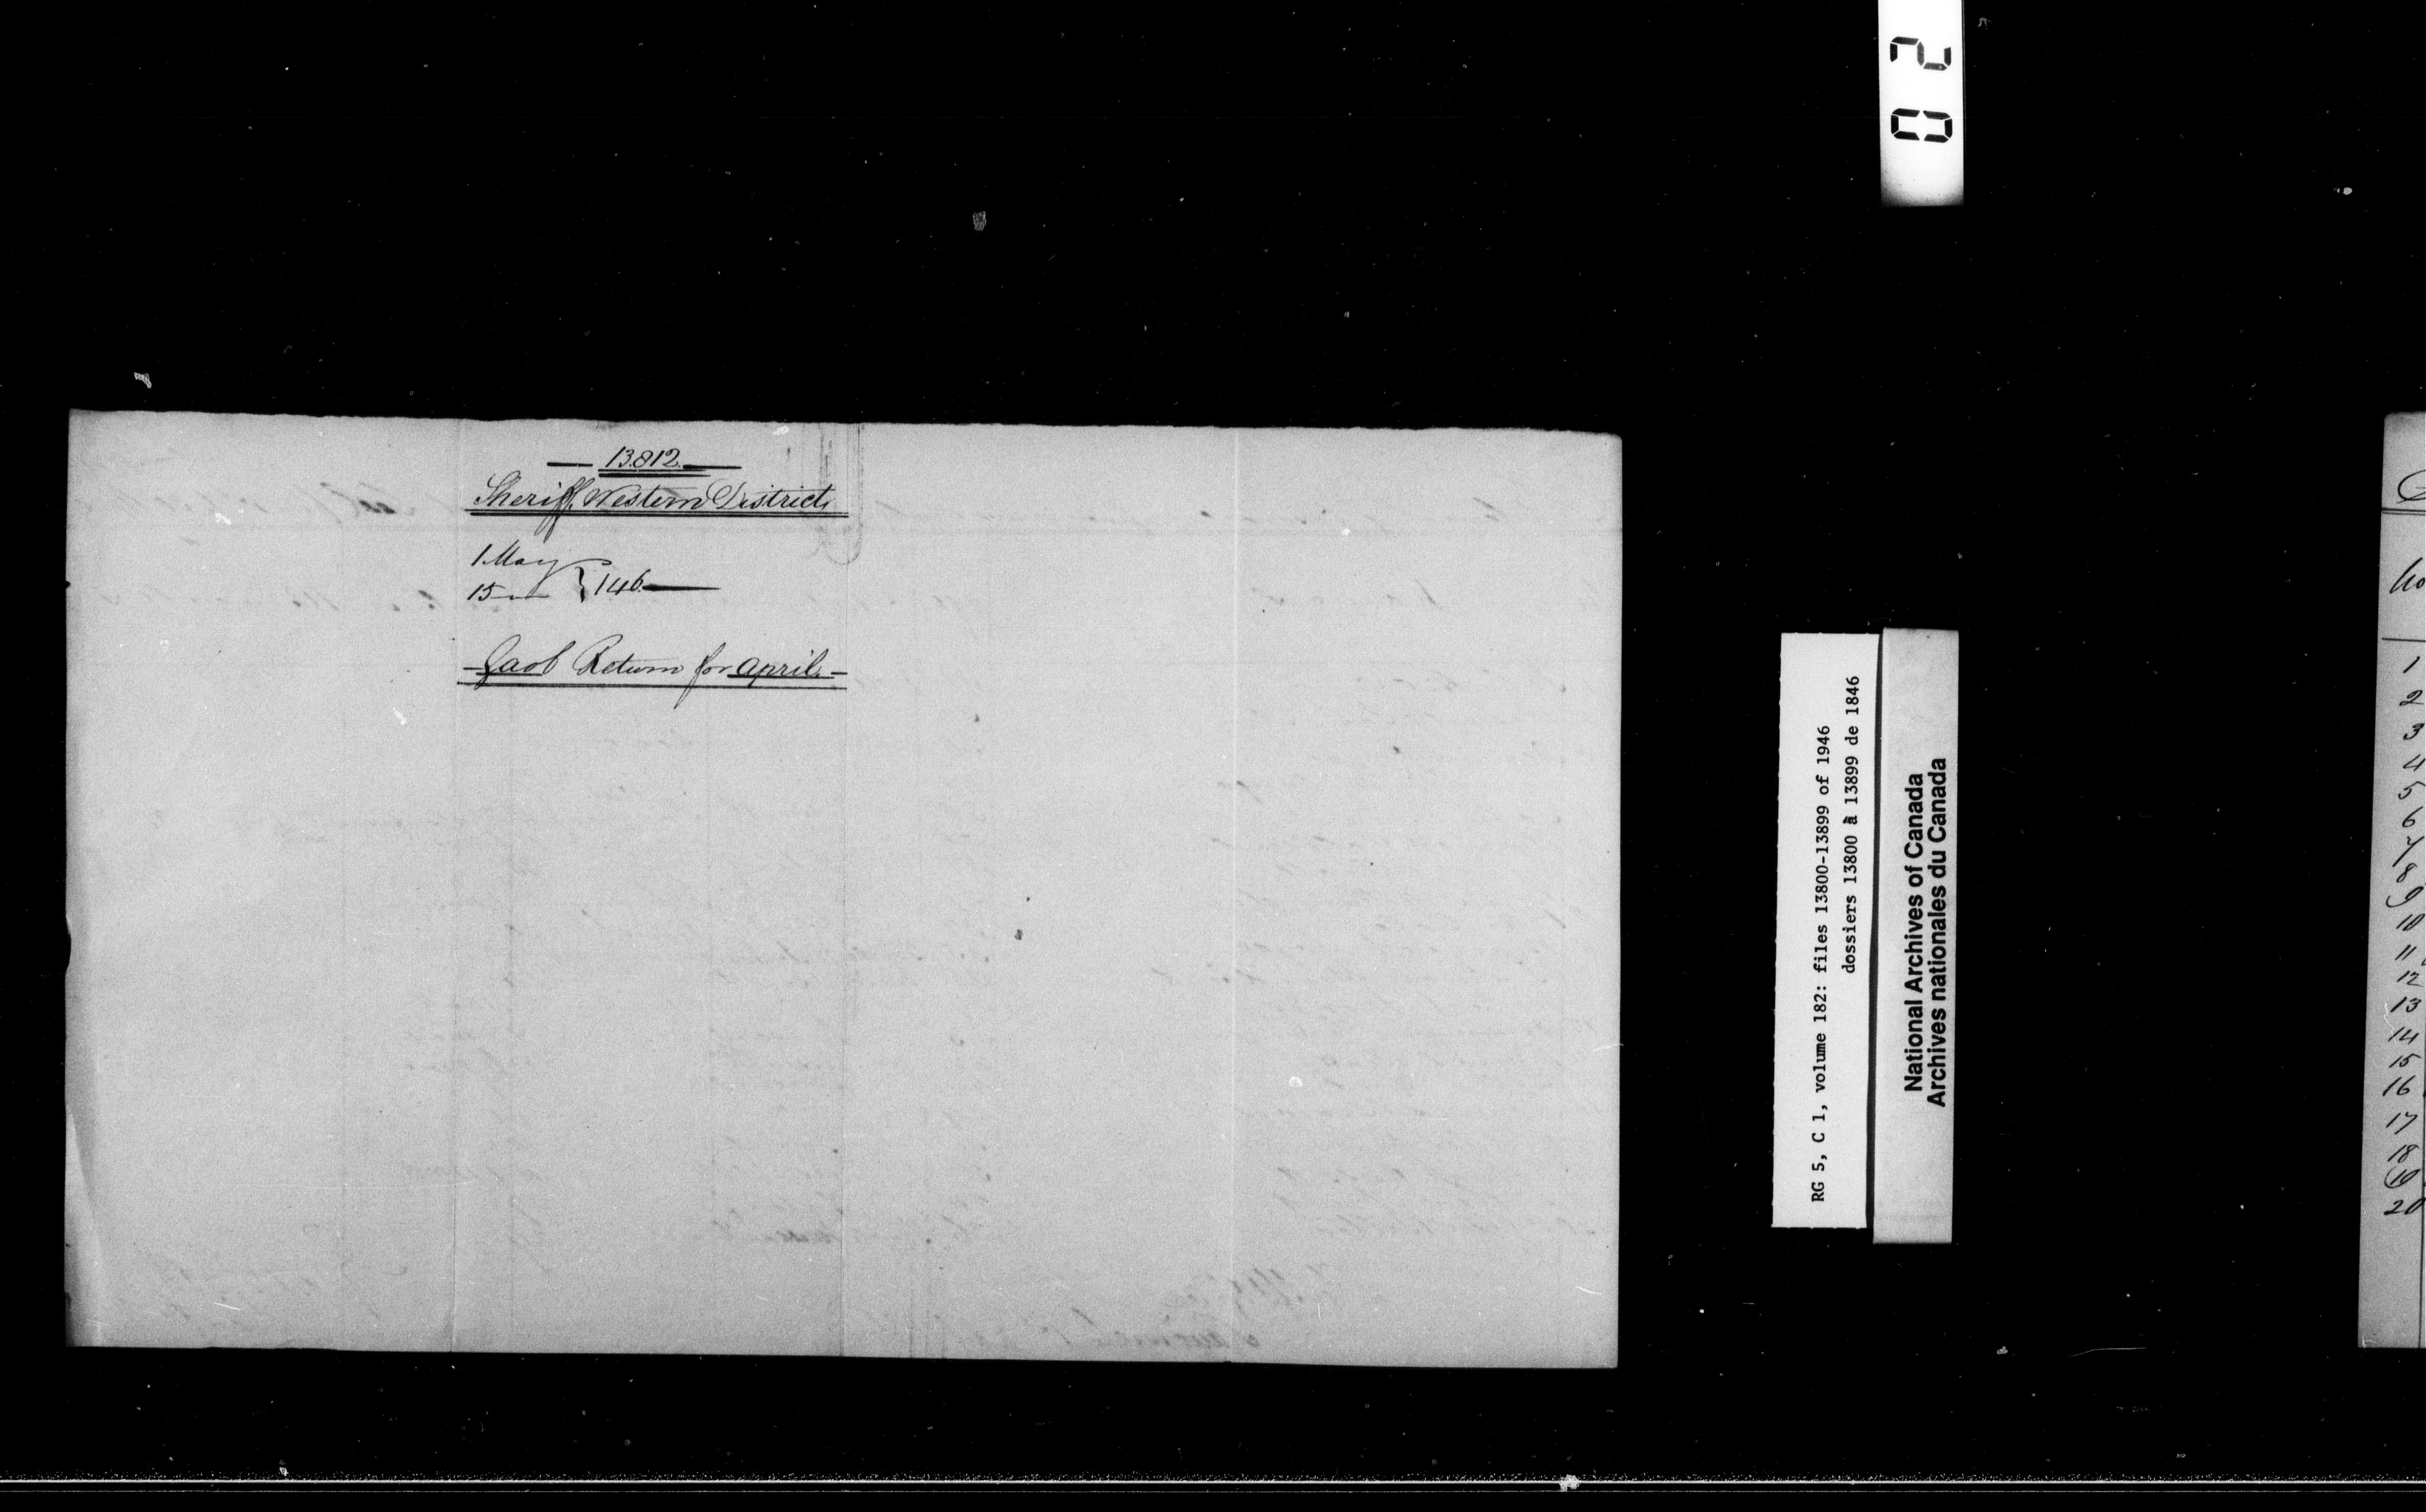 02
13812
Sheriff, Western District,
1 May
15 — } 146
Gaol Return for April.
RG 5, C 1, volume 182: files 13800-13899 of 1946
dossiers 13800 à 13899 de 1846
National Archives of Canada
Archives nationales du Canada
No
1
2
3
4
5
6
7
8
9
10
11
12
13
14
15
16
17
18
19
20